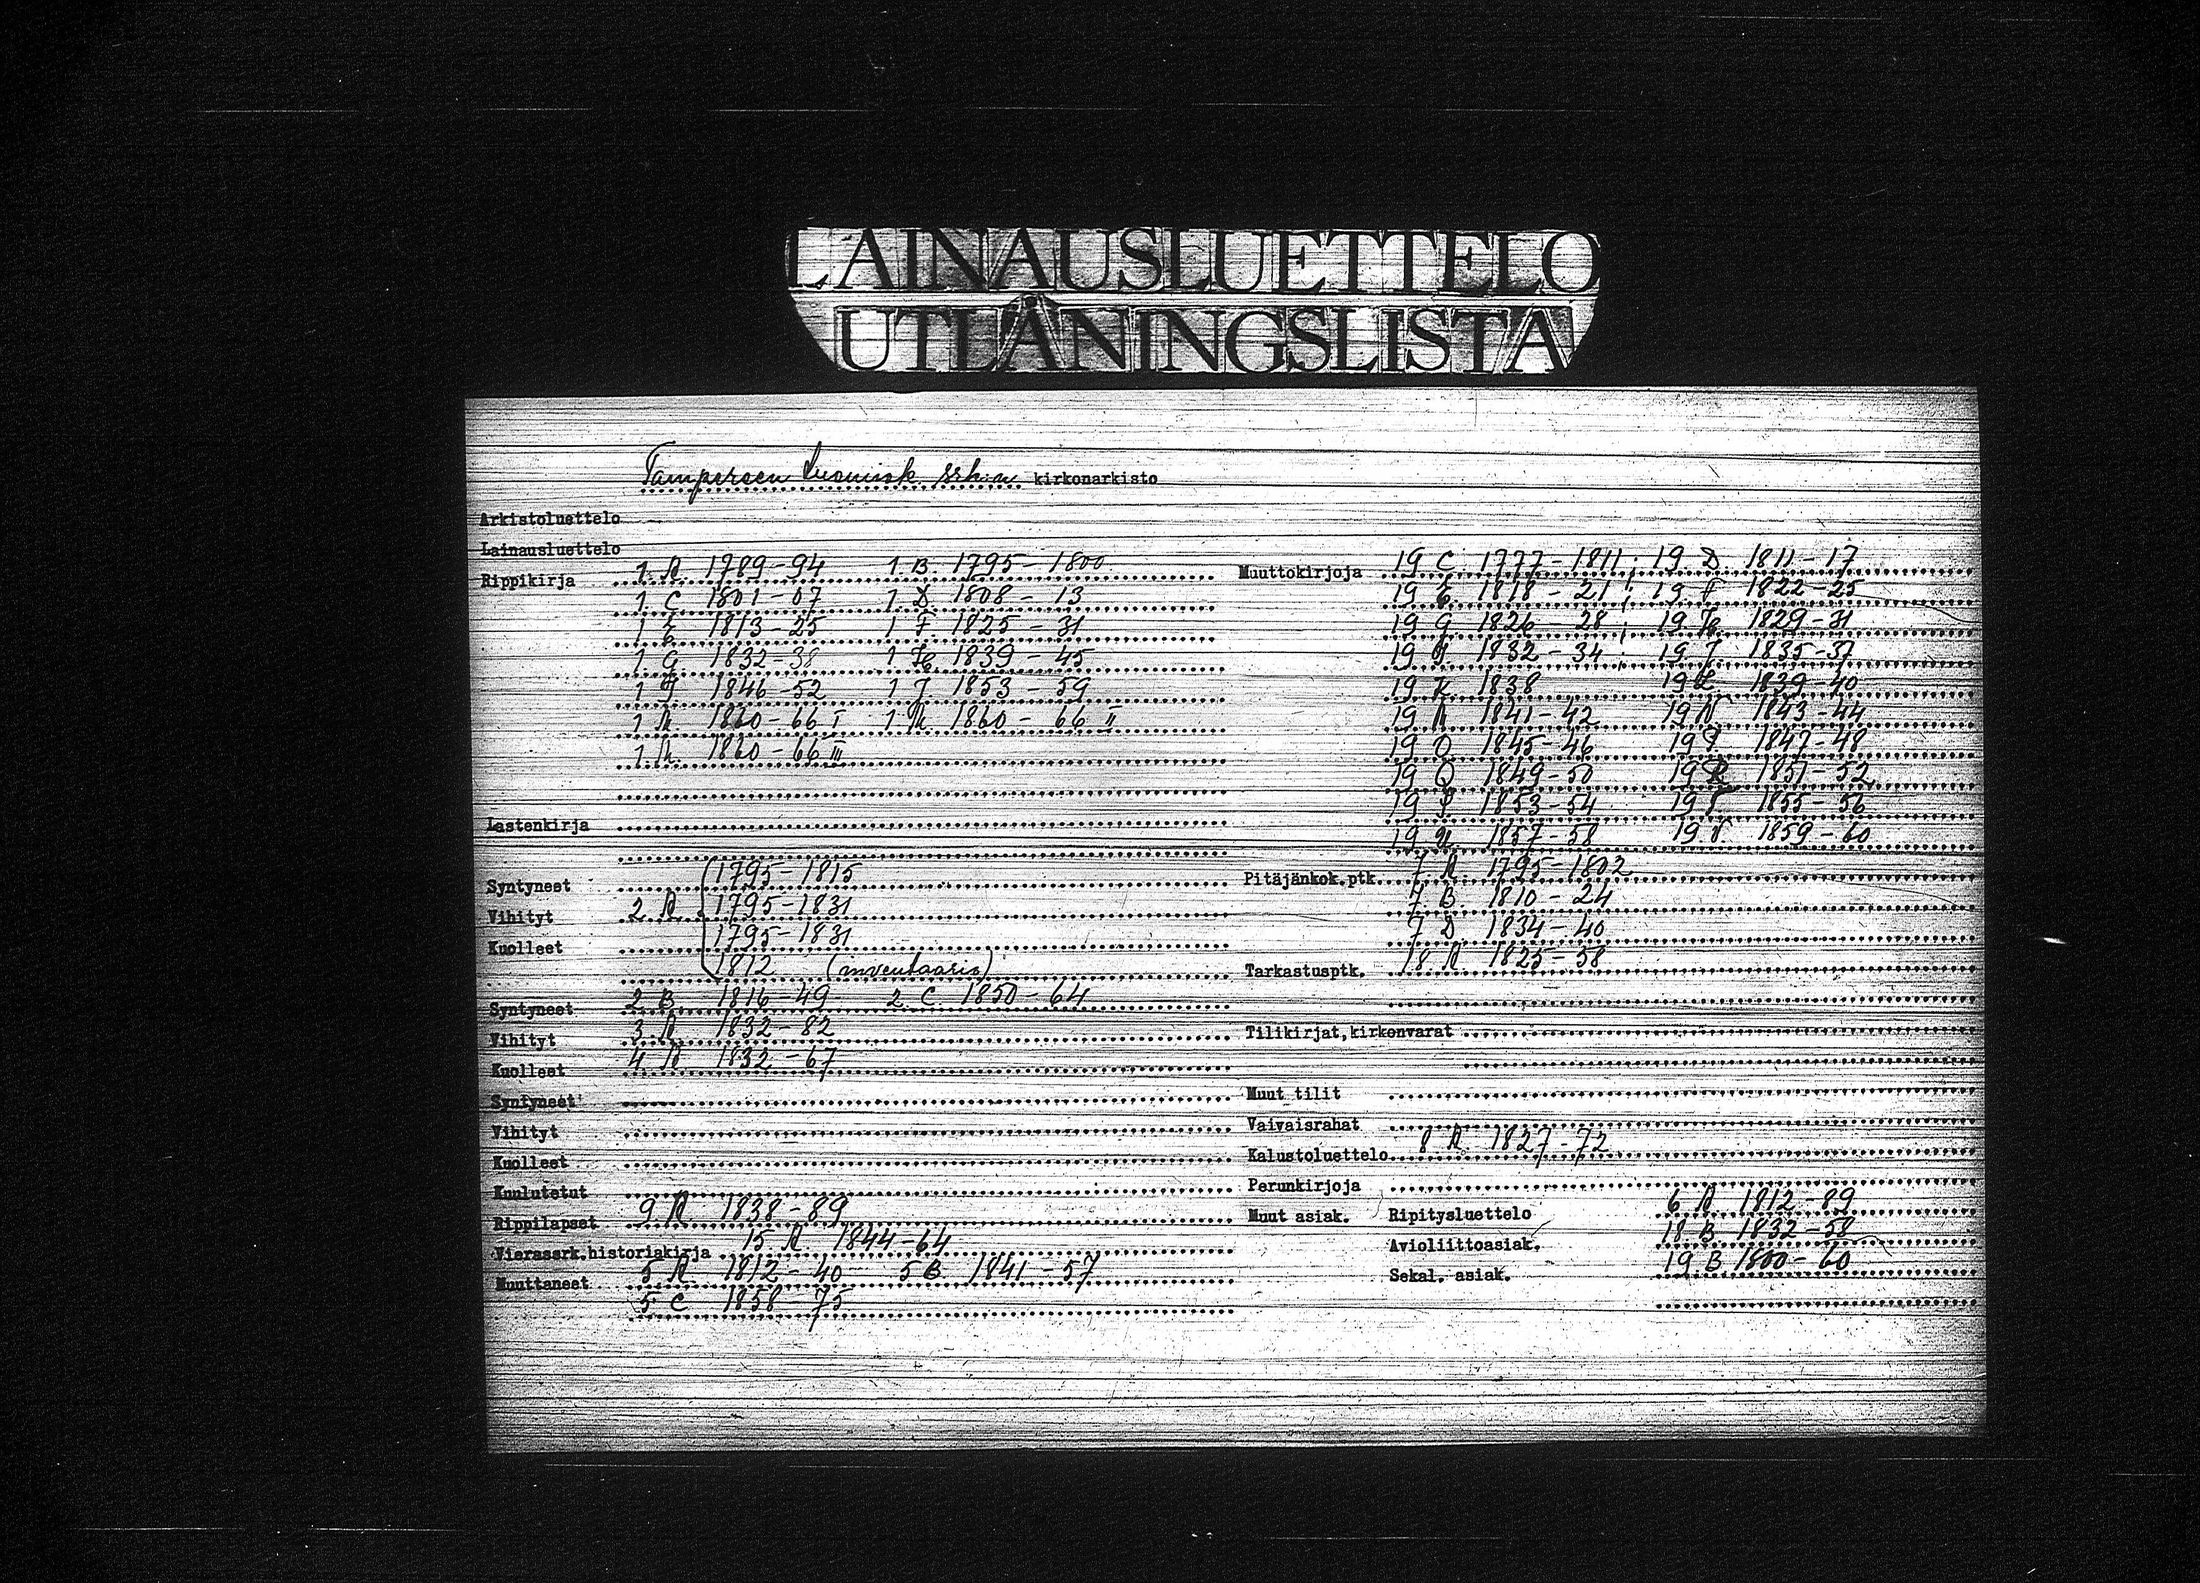 LAINAUSLUETTELO
UTLÅNINGSLISTA
Tampereen tuomiok. srk:n kirkonarkisto
Arkistoluettelo
Lainausluettelo
Rippikirja 1 A 1789-94 1 B 1795-1800
1 C 1801-07 1 D 1808-13
1 E 1813-25 1 F 1825-31
1 G 1832-38 1 H 1839-45
1 I 1846-52 1 J 1853-59
1 K 1860-66 I 1 K 1860-66 II
1 K 1860-66 III
Lastenkirja
Syntyneet 1795-1815
Vihityt 2 A 1795-1831
Kuolleet 1795-1831
1812 (inventaario)
Syntyneet 2 B 1816-49 2 C 1850-64
Vihityt 3 A 1832-82
Kuolleet 4 A 1832-67
Syntyneet
Vihityt
Kuolleet
Kuulutetut
Rippilapset 9 A 1838-89
Vierassrk.historiakirja 15 A 1844-64
Muuttaneet 5 A 1812-40 5 B 1841-57
5 C 1858-75
Muuttokirjoja 19 C 1777-1811; 19 D 1811-17
19 E 1818-21; 19 F 1822-25
19 G 1826-28; 19 H 1829-31
19 I 1832-34; 19 J 1835-37
19 K 1838 19 L 1839-40
19 M 1841-42 19 N 1843-44
19 O 1845-46 19 P 1847-48
19 Q 1849-50 19 R 1851-52
19 S 1853-54 19 T 1855-56
19 U 1857-58 19 V 1859-60
Pitäjänkok.ptk. 7 A 1795-1802
7 B 1810-24
7 D 1834-40
Tarkastusptk. 18 A 1825-58
Tilikirjat,kirkonvarat
Muut tilit
Vaivaisrahat
Kalustoluettelo 8 A 1827-72
Perunkirjoja
Muut asiak. Ripitysluettelo 6 A 1812-89
Avioliittoasiak. 18 B 1832-58
Sekal. asiak. 19 B 1800-60